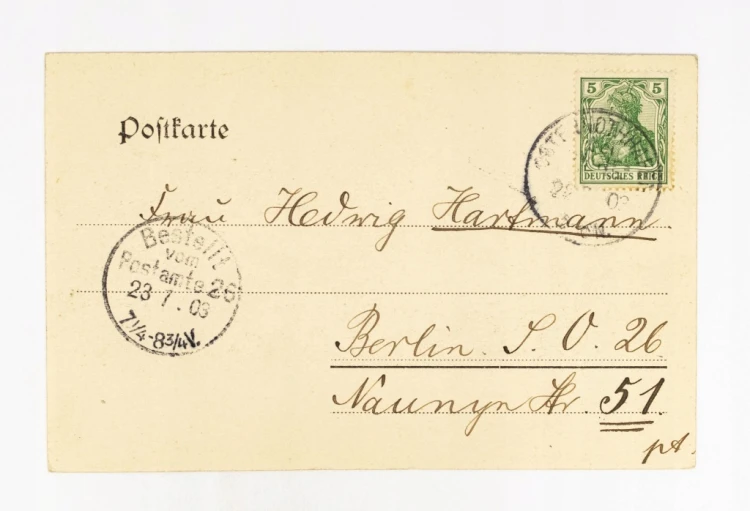 5 5
DEUTSCHES REICH
Postkarte
Frau Hedwig Hartmann
Bestellt
vom
Postamte 26
23 7. 03
7 1/4-8 3/4 V.
Berlin. S. O. 26
Naunyn Str. 51.
pt.